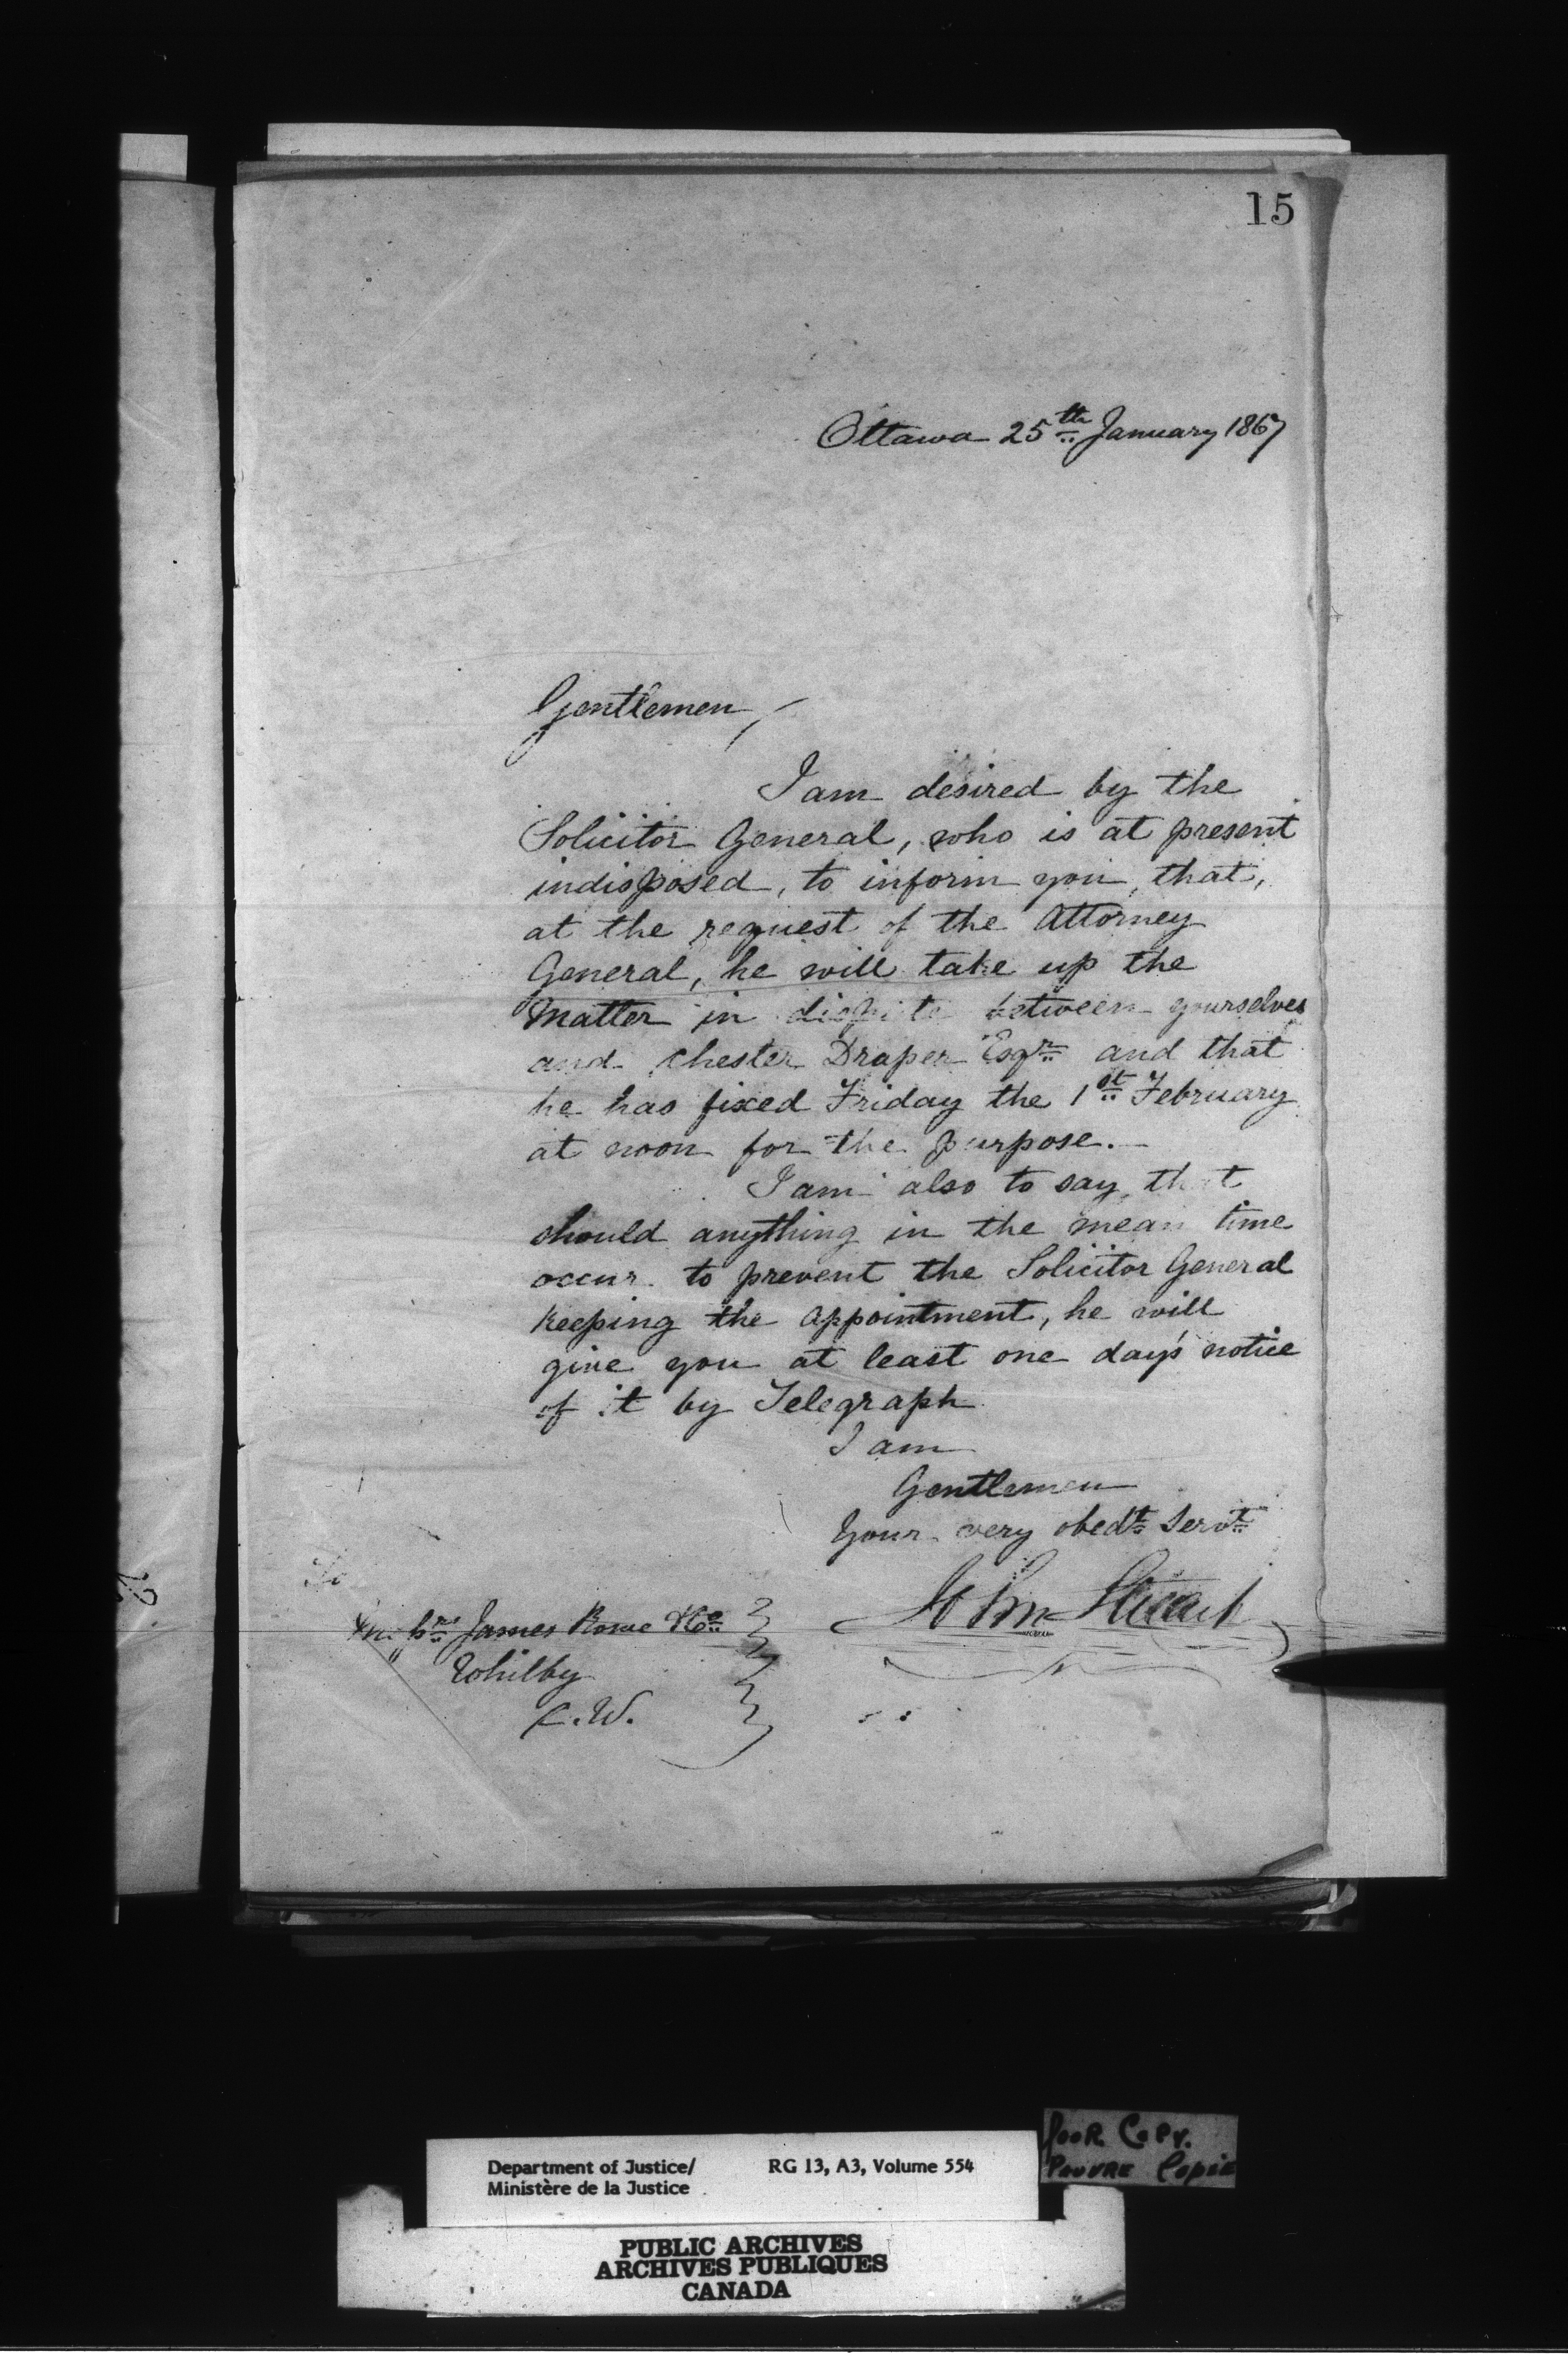 15
Ottawa 25th January 1867
Gentlemen,
I am desired by the
Solicitor General, who is at present
indisposed, to inform you, that,
at the request of the Attorney
General, he will take up the
Matter in dispute between yourselves
and Chester Draper Esqr. and that
he has fixed Friday the 1st February
at noon for the purpose.
I am also to say that
should anything in the mean time
occur to prevent the Solicitor General
keeping the appointment, he will
give you at least one day's notice
of it by Telegraph
I am
Gentlemen
Your very obedt. Servt.
To
James Rowe & Co.
Whitby
C.W.
John
Department of Justice/ RG 13, A3, Volume 554
Ministère de la Justice
Poor Copy.
Pauvre Copie
PUBLIC ARCHIVES
ARCHIVES PUBLIQUES
CANADA